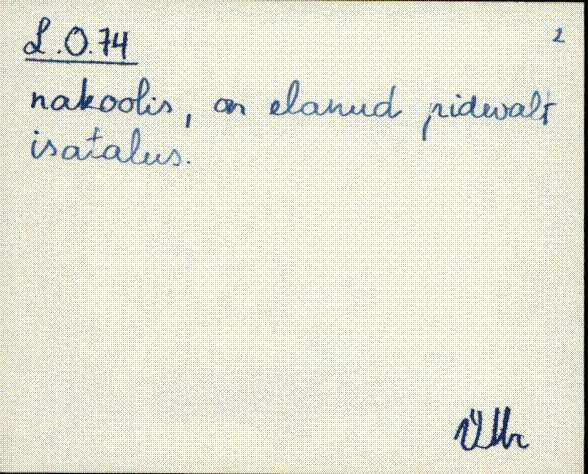 L.O.74
2
nakoolis, on elanud pidevalt
isatalus.